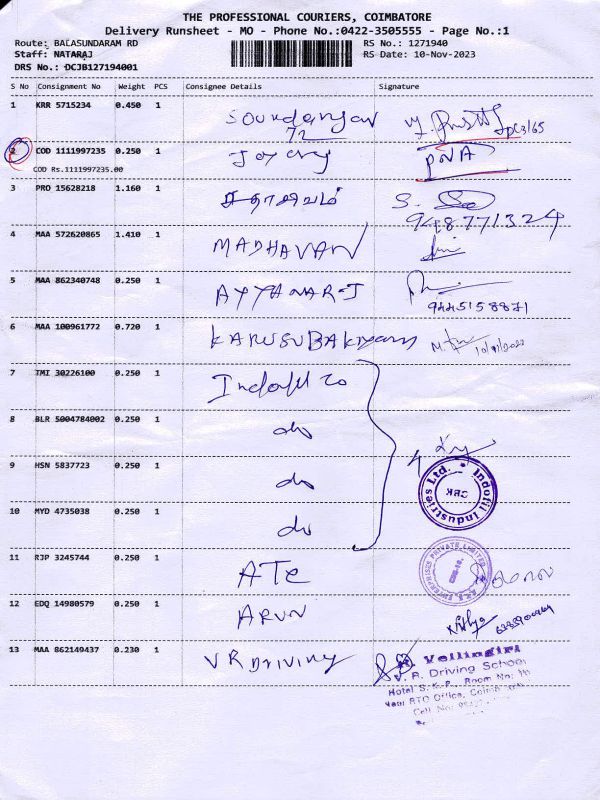 THE PROFESSIONAL COURIERS, COIMBATORE
Delivery Runsheet - MO - Phone No.:0422-3505555 - Page No.:1
Route: BALASUNDARAM RD RS No.: 1271940
Staff: NATARAJ RS Date: 10-Nov-2023
DRS No.: DCJB127194001
S No Consignment No Weight PCS Consignee Details Signature
1 KRR 5715234 0.450 1
72
2 COD 1111997235 0.250 1
COD Rs.1111997235.00
3 PRO 15628218 1.160 1 S.
948771324
4 MAA 572620865 1.410 1 MADHAVAN
5 MAA 862340748 0.250 1 AYYANAR-J
9445158871
6 MAA 100961772 0.720 1
7 TMI 30226100 0.250 1 Indofil co
8 BLR 5004784002 0.250 1 do
9 HSN 5837723 0.250 1 do
Indofil Industries Ltd.
CBK
10 MYD 4735038 0.250 1 do
11 RJP 3245744 0.250 1 ATE
ENTERPRISES PRIVATE LIMITED
12 EDQ 14980579 0.250 1 ARUN Nithya
13 MAA 862149437 0.230 1 VR Driving
Vellingiri
R. Driving School
Hotel S.K.P., Room No:
Near RTO Office,
Cell No: